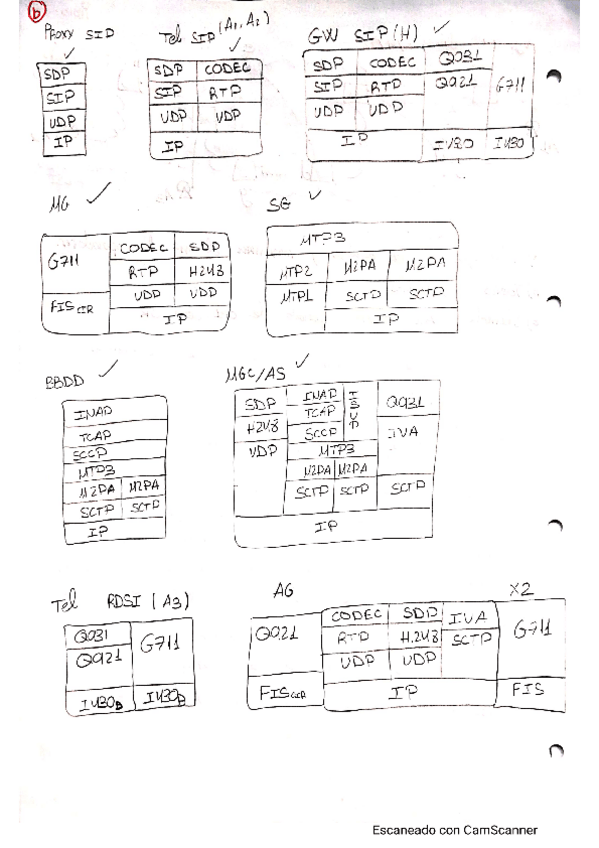 b
Proxy SIP
Tel SIP (A1, A2)
GW SIP (H)
SDP
SIP
UDP
IP
SDP CODEC
SIP RTP
UDP UDP
IP
SDP CODEC Q931
SIP RTP Q921 G711
UDP UDP
IP I430 I430
MG
SG
G711 CODEC SDP
RTP H248
FIS CIR UDP UDP
IP
MTP3
MTP2 M2PA M2PA
MTP1 SCTP SCTP
IP
BBDD
MGC/AS
INAP
TCAP
SCCP
MTP3
M2PA M2PA
SCTP SCTP
IP
SDP INAP ISUP Q931
H248 TCAP IUA
UDP SCCP
MTP3
M2PA M2PA
SCTP SCTP SCTP
IP
Tel RDSI (A3)
AG
X2
Q931 G711
Q921
I430B I430B
Q921 CODEC SDP IUA G711
RTP H.248 SCTP
UDP UDP
FIS IP FIS
Escaneado con CamScanner